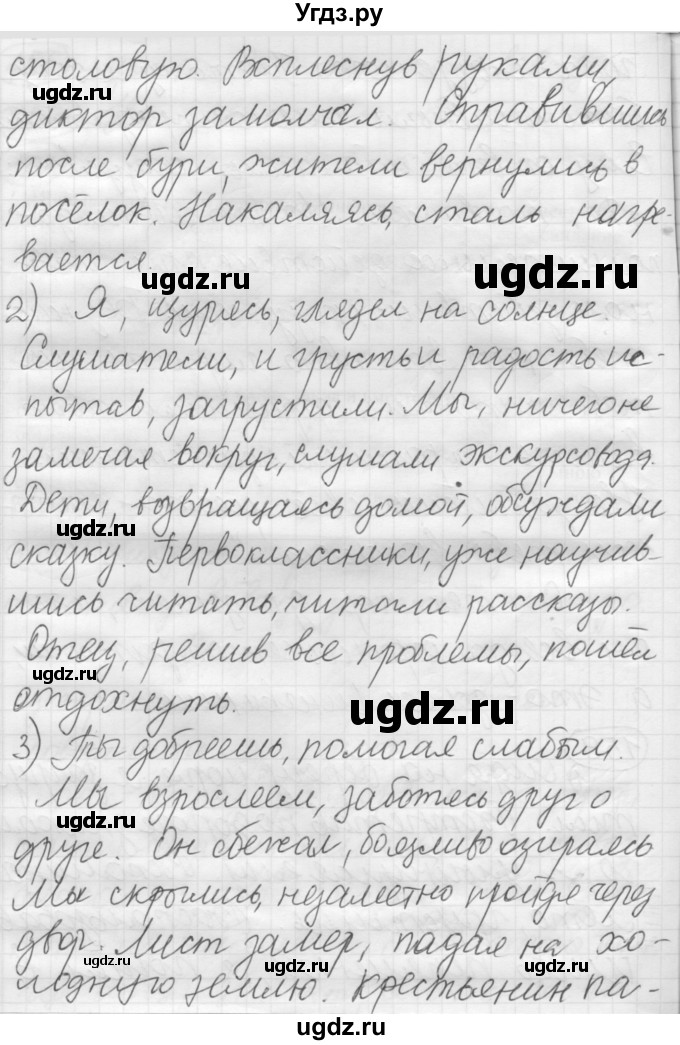 Угдз.ру
столовую. Всплеснув руками,
ugdz.ru
диктор замолчал. Оправившись
после бури, жители вернулись в
посёлок. Накаляясь, сталь нагре-
вается.
ugdz.ru ugdz.ru
2) Я, щурясь, глядел на солнце.
Слушатели, и грусть и радость ис-
пытав, загрустили. Мы, ничего не
замечая вокруг, слушали экскурсовода.
Дети, возвращаясь домой, обсуждали
ugdz.ru
сказку. Первоклассники, уже научив-
шись читать, читали рассказы.
Отец, решив все проблемы, пошёл
ugdz.ru
отдохнуть. ugdz.ru
3) Ты добреешь, помогая слабым.
Мы взрослеем, заботясь друг о
ugdz.ru
друге. Он сбежал, боязливо озираясь
Мы скрылись, незаметно пройдя через
двор. Лист замер, падая на хо-
ugdz.ru ugdz.ru
лодную землю. Крестьянин па-
ugdz.ru